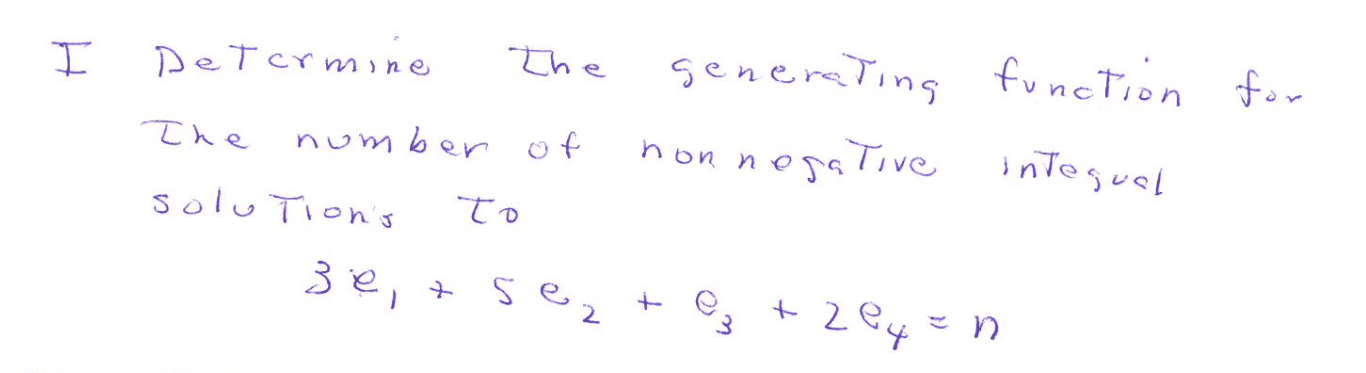 I Determine the generating function for
the number of nonnegative integral
solutions to
3e₁ + 5e₂ + e₃ + 2e₄ = n